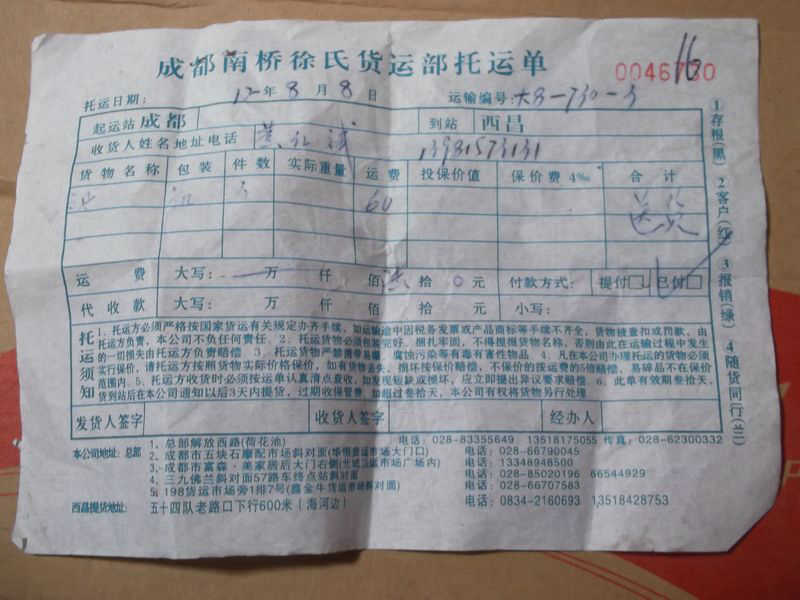 成都南桥徐氏货运部托运单
托运日期： 12年8月8日 运输编号：
起运站 成都 到站 西昌
收货人姓名地址电话 13981573131
货物名称 包装 件数 实际重量 运费 投保价值 保价费4‰ 合计
60 送货
运费 大写： 万 仟 佰 拾 0元 付款方式： 提付□ 已付□
代收款 大写： 万 仟 佰 拾 元 小写：
托运须知
1、托运方必须严格按国家货运有关规定办齐手续，如运输途中因税务发票或产品商标等手续不齐全，货物被查扣或罚款，由
托运方负责，本公司不负任何责任。2、托运货物必须包装完好，捆扎牢固，不得提报货物名称，否则由此在运输过程中发生
的一切损失由托运方负责赔偿 3、托运货物严禁携带易爆、腐蚀污染等有毒有害性物品 4、凡在本公司办理托运的货物必须
实行保价，请托运方按照货物实际价格保价，如有货物丢失、损坏按保价赔偿，不保价的按运费的5倍赔偿，易碎品不在保价
范围内 5、托运方收货时必须按运单认真清点查收，如发现短缺或损坏，应立即提出异议要求赔偿 6、此单有效期叁拾天，
货到站后在本公司通知以后3天内提货，过期收保管费，如超过叁拾天，本公司有权将货物另行处理
发货人签字 收货人签字 经办人
①存根(黑) 2客户(红) 3报销(绿) 4随货同行(兰)
本公司地址：总部 1、总部解放西路(荷花池) 电话：028-83355649 13518175055 传真：028-62300332
2、成都市五块石摩配市场斜对面 电话：028-66790045
3、成都市富森·美家居后大门右侧 电话：13348948500
电话：028-85020196 66544929
4、三九佛兰斜对面57路车终点站斜对面 电话：028-66707583
5、198货运市场旁1排7号
西昌提货地址： 五十四队老路口下行600米（海河边） 电话：0834-2160693 13518428753